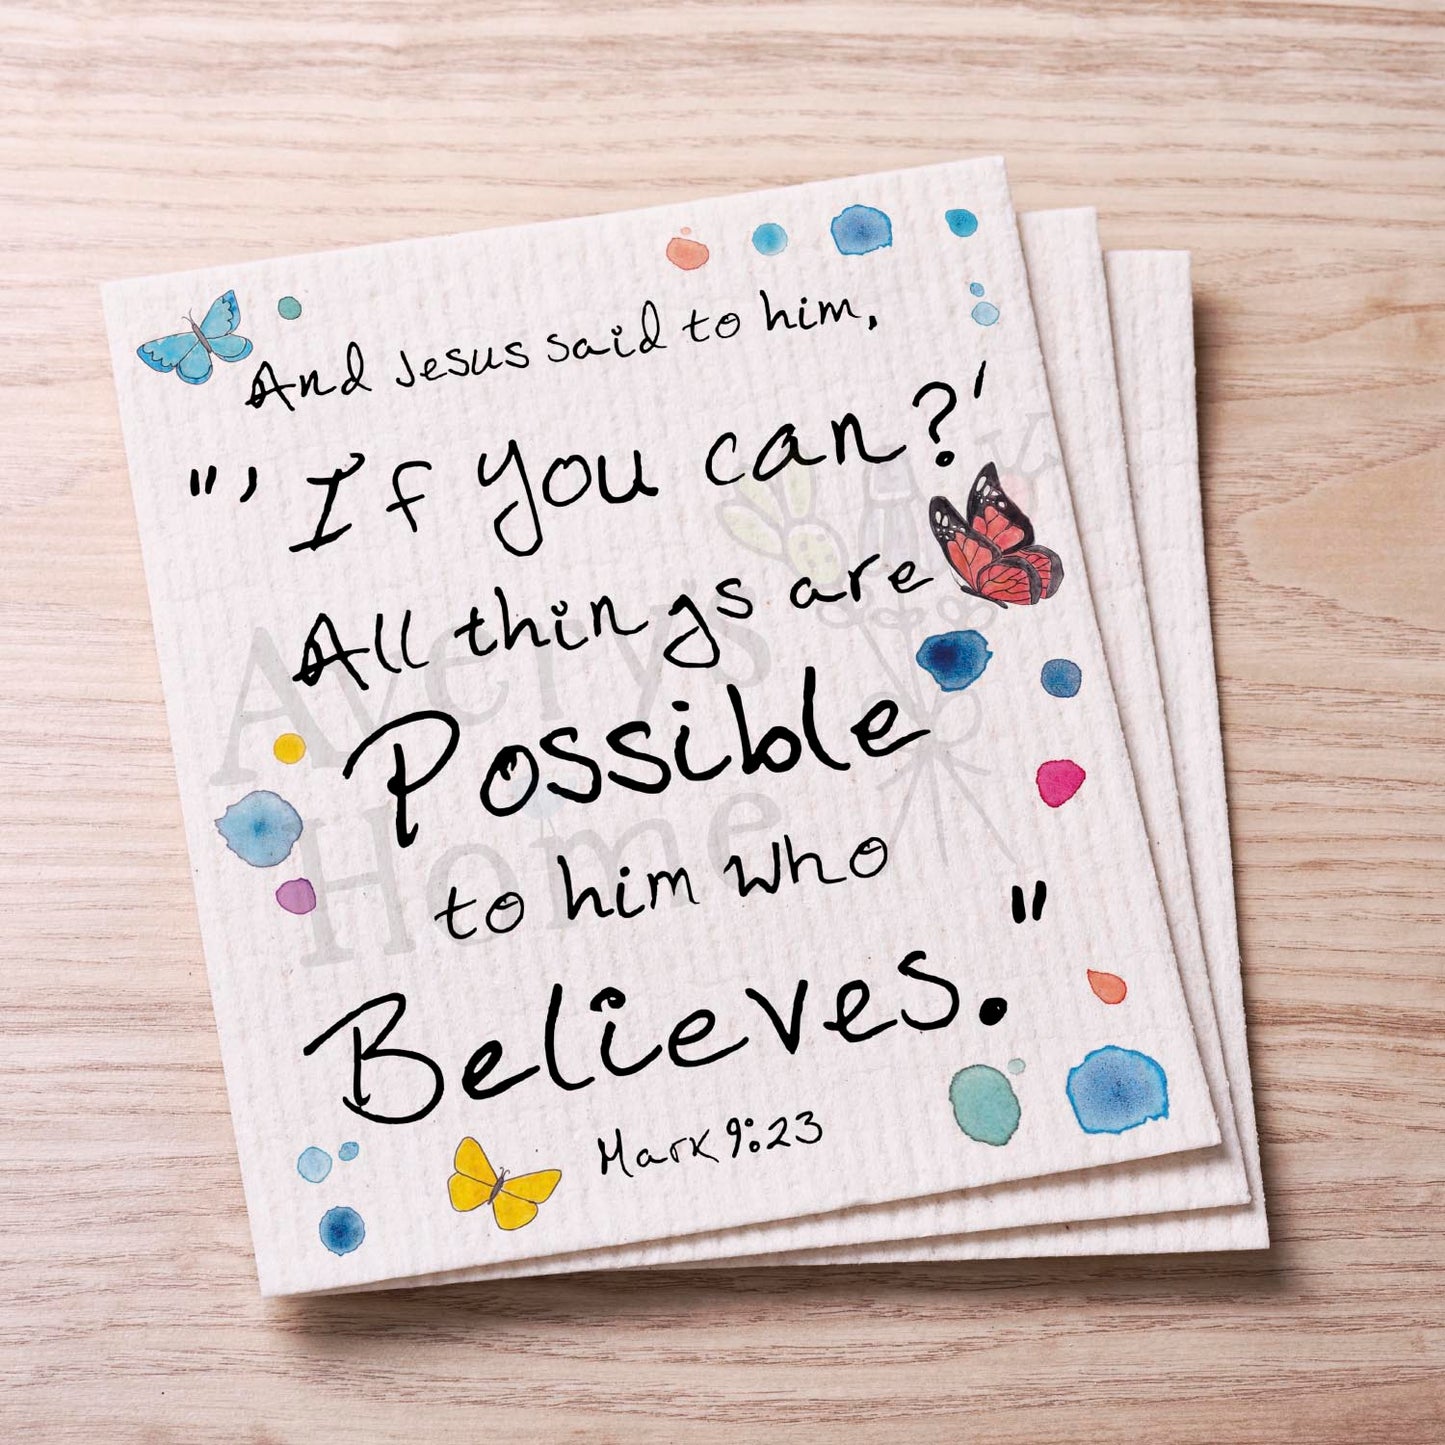 And Jesus said to him,
"'If you can?'
All things are
Possible
to him who
Believes."
Mark 9:23
Averys
Home